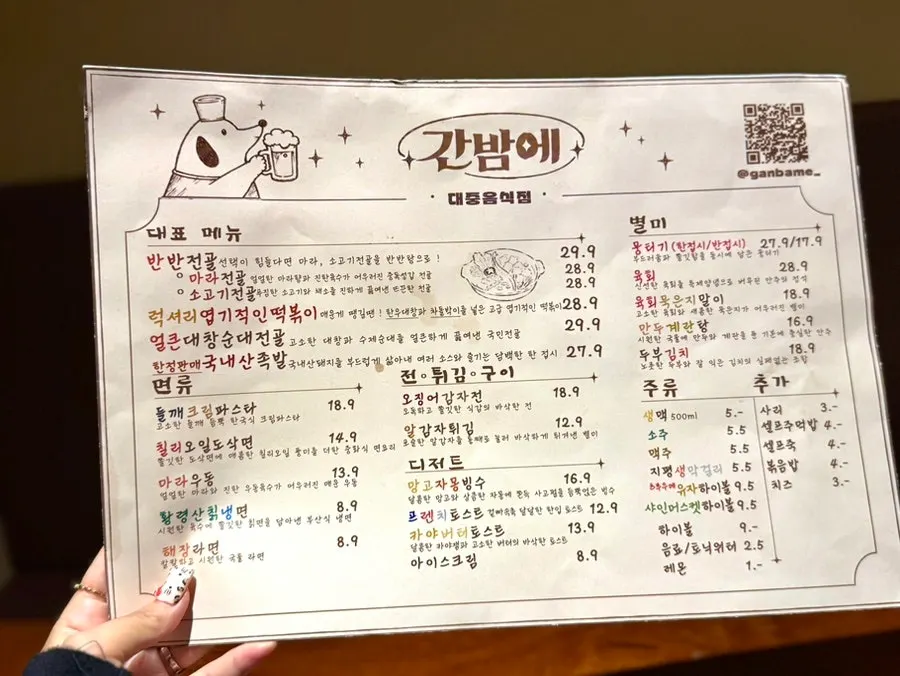 간밤에
@ganbame_
· 대중음식점 ·
대표 메뉴
반반전골 선택이 힘들다면 마라, 소고기전골을 반반탕으로! 29.9
마라전골 얼얼한 마라탕과 진한육수가 어우러진 중독성갑 전골 28.9
소고기전골 푸짐한 소고기와 채소를 진하게 끓여낸 든든한 전골 28.9
럭셔리 엽기적인떡볶이 매운게 땡길땐! 한우대창과 차돌박이를 넣은 고급 엽기적인 떡볶이 28.9
얼큰대창순대전골 고소한 대창과 수제순대를 얼큰하게 끓여낸 국민전골 29.9
한정판매 국내산족발 국내산돼지를 부드럽게 삶아내 여러 소스와 즐기는 담백한 한 접시 27.9
면류
들깨크림파스타 18.9
고소한 들깨 듬뿍 한국식 크림파스타
칠리오일도삭면 14.9
쫄깃한 도삭면에 매콤한 칠리오일 풍미를 더한 중화식 면요리
마라우동 13.9
얼얼한 마라와 진한 우동육수가 어우러진 매운 우동
황령산칡냉면 8.9
시원한 육수에 쫄깃한 칡면을 담아낸 부산식 냉면
해장라면 8.9
칼칼하고 시원한 국물 라면
전·튀김·구이
오징어감자전 18.9
오독하고 쫄깃한 식감의 바삭한 전
알감자튀김 12.9
포슬한 알감자를 통째로 눌러 바삭하게 튀겨낸 별미
디저트
망고자몽빙수 16.9
달콤한 망고와 상큼한 자몽에 쫀득 사고펄을 듬뿍얹은 빙수
프렌치토스트 겉바속촉 달달한 한입 토스트 12.9
카야버터토스트 13.9
달콤한 카야잼과 고소한 버터의 바삭한 토스트
아이스크림 8.9
별미
뭉터기 (한접시/반접시) 27.9/17.9
부드러움과 쫄깃함을 동시에 담은 뭉터기
육회 28.9
신선한 육회를 특제양념으로 버무린 안주의 정석
육회묵은지말이 18.9
고소한 육회와 새콤한 묵은지가 어우러진 별미
만두계란탕 16.9
시원한 국물에 만두와 계란을 푼 기본에 충실한 안주
두부김치 18.9
노릇한 두부와 잘 익은 김치의 실패없는 조합
주류
생맥 500ml 5.-
소주 5.5
맥주 5.5
지평생막걸리 5.5
유자하이볼 9.5
샤인머스켓하이볼 9.5
하이볼 9.-
음료/토닉워터 2.5
레몬 1.-
추가
사리 3.-
셀프주먹밥 4.-
셀프죽 4.-
볶음밥 4.-
치즈 3.-